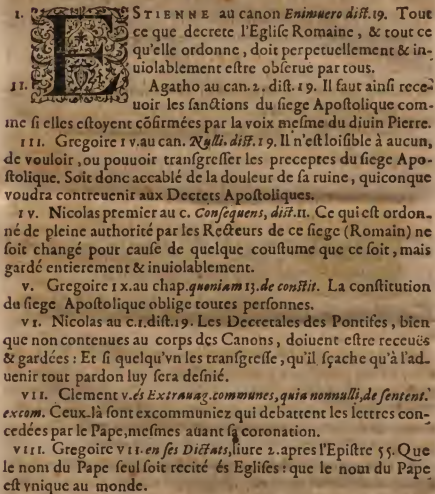 I. ESTIENNE au canon Enimuero dist.19. Tout
ce que decrete l'Eglise Romaine, & tout ce
qu'elle ordonne, doit perpetuellement & in-
uiolablement estre obserue par tous.
II. Agatho au can. 2. dist. 19. Il faut ainsi rece-
uoir les sanctions du siege Apostolique com-
me si elles estoyent cõfirmées par la voix mesme du diuin Pierre.
III. Gregoire IV. au can. Nulli. dist. 19. Il n'est loisible à aucun,
de vouloir, ou pouuoir transgresser les preceptes du siege Apo-
stolique. Soit donc accablé de la douleur de sa ruine, quiconque
voudra contreuenir aux Decrets Apostoliques.
IV. Nicolas premier au c. Consequens, dist.11. Ce qui est ordon-
né de pleine authorité par les Recteurs de ce siege (Romain) ne
soit changé pour cause de quelque coustume que ce soit, mais
gardé entierement & inuiolablement.
V. Gregoire IX. au chap. quoniam 13. de constit. La constitution
du siege Apostolique oblige toutes personnes.
VI. Nicolas au c.1. dist.19. Les Decretales des Pontifes, bien
que non contenues au corps des Canons, doiuent estre receuës
& gardées : Et si quelqu'vn les transgresse, qu'il sçache qu'à l'ad-
uenir tout pardon luy sera desnié.
VII. Clement V. és Extrauag. communes, quia nonnulli, de sentent.
excom. Ceux-là sont excommuniez qui debattent les lettres con-
cedées par le Pape, mesmes auant sa coronation.
VIII. Gregoire VII. en ses Dictats, liure 2. apres l'Epistre 55. Que
le nom du Pape seul soit recité és Eglises : que le nom du Pape
est vnique au monde.